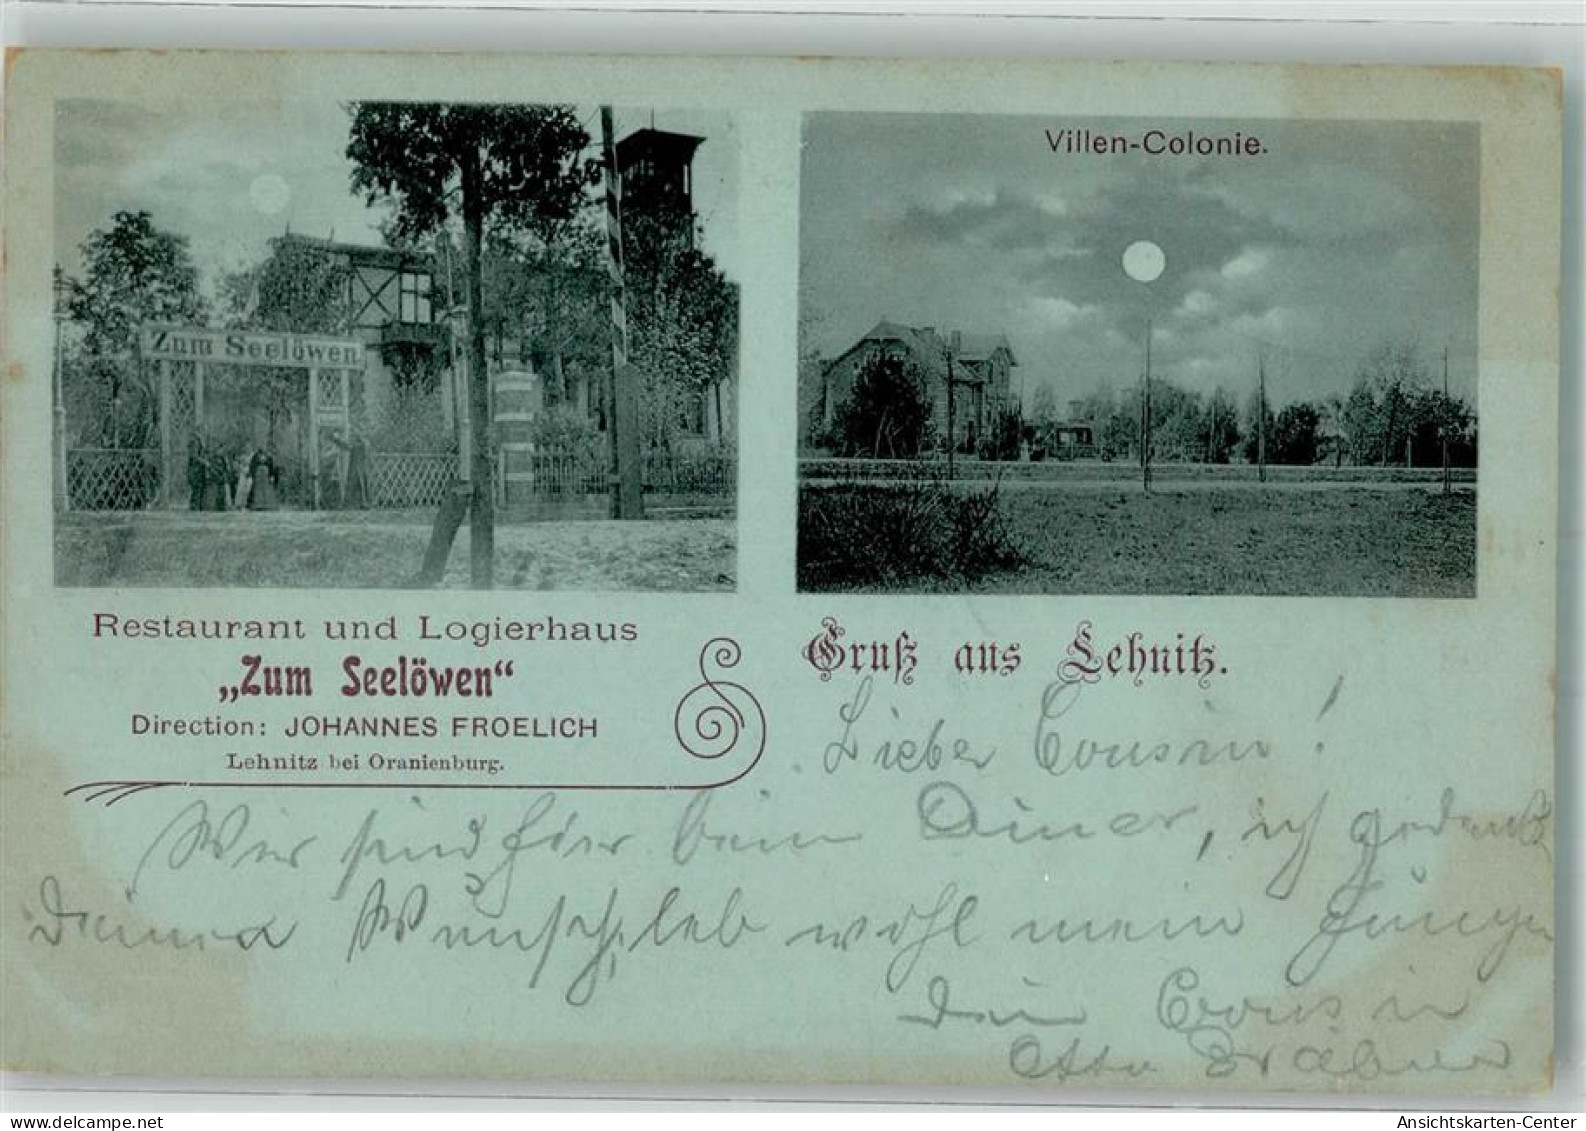 Villen-Colonie.
Zum Seelöwen
Restaurant und Logierhaus
„Zum Seelöwen“
Direction: JOHANNES FROELICH
Lehnitz bei Oranienburg.
Gruß aus Lehnitz.
Lieber Cousin!
Wir sind hier beim Diner, ich gedenk
Deiner Wünsch, leb wohl mein Junge
Dein Cousin
Otto
www.delcampe.net
Ansichtskarten-Center